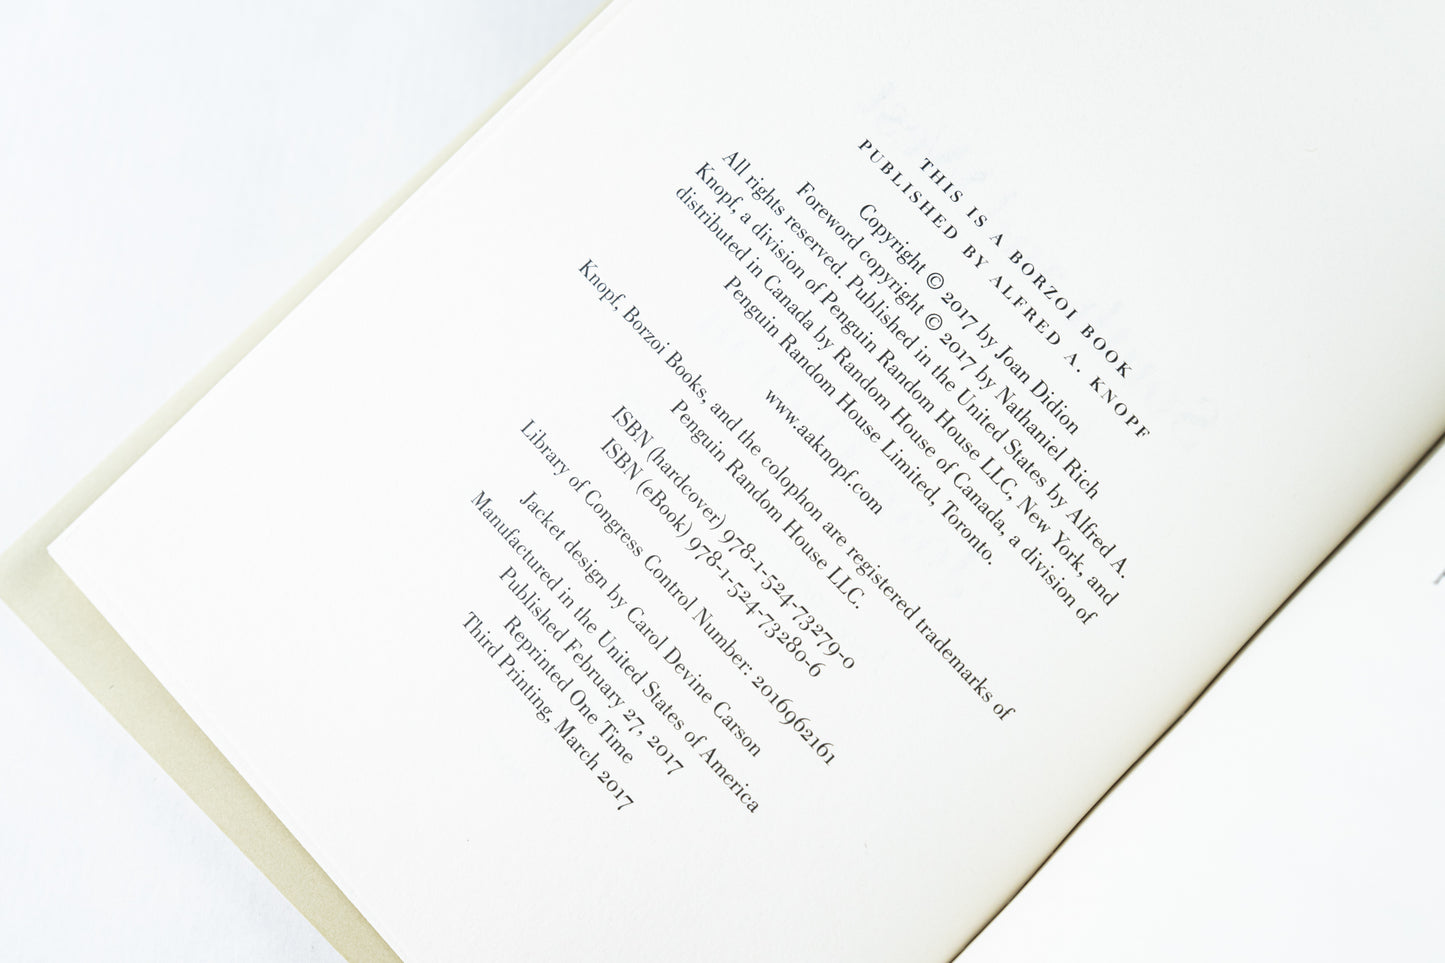 THIS IS A BORZOI BOOK
PUBLISHED BY ALFRED A. KNOPF
Copyright © 2017 by Joan Didion
Foreword copyright © 2017 by Nathaniel Rich
All rights reserved. Published in the United States by Alfred A.
Knopf, a division of Penguin Random House LLC, New York, and
distributed in Canada by Random House of Canada, a division of
Penguin Random House Limited, Toronto.
www.aaknopf.com
Knopf, Borzoi Books, and the colophon are registered trademarks of
Penguin Random House LLC.
ISBN (hardcover) 978-1-524-73279-0
ISBN (eBook) 978-1-524-73280-6
Library of Congress Control Number: 2016962161
Jacket design by Carol Devine Carson
Manufactured in the United States of America
Published February 27, 2017
Reprinted One Time
Third Printing, March 2017